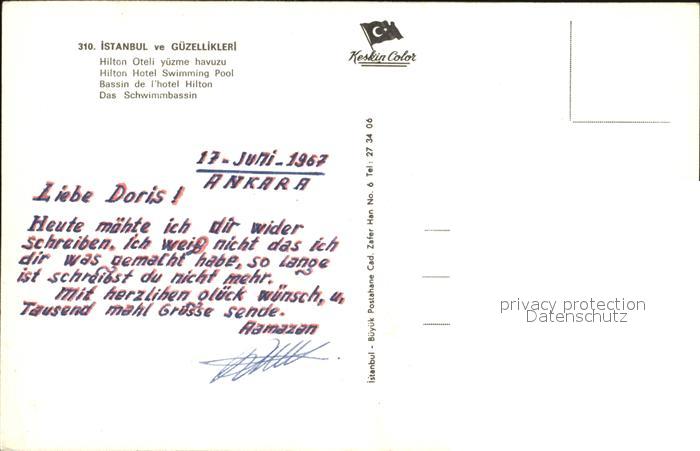 310. İSTANBUL ve GÜZELLİKLERİ
Hilton Oteli yüzme havuzu
Hilton Hotel Swimming Pool
Bassin de l'hotel Hilton
Das Schwimmbassin
Keskin Color
17-Juni-1967
ANKARA
Liebe Doris!
Heute mähte ich dir wider
schreiben. ich weiß nicht das ich
dir was gemacht habe, so lange
ist schraibst du nicht mehr.
Mit herzlihen glück wünsch, u,
Tausend mahl Grüsse sende.
Ramazan
İstanbul - Büyük Postahane Cad. Zafer Han No. 6 Tel: 27 34 06
privacy protection
Datenschutz